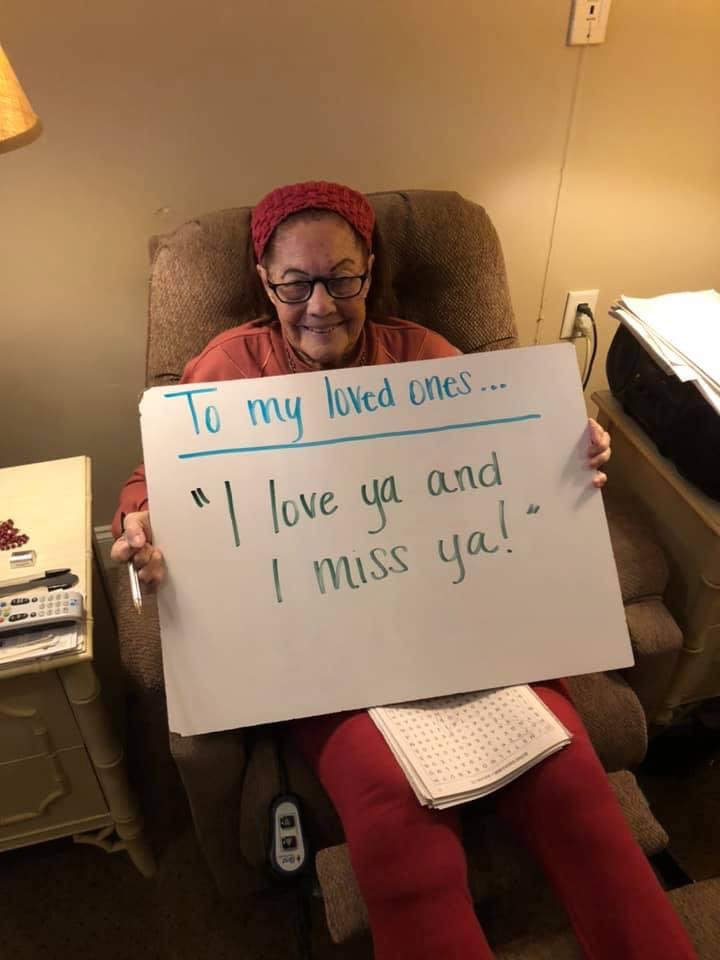 To my loved ones...
"I love ya and
I miss ya!"